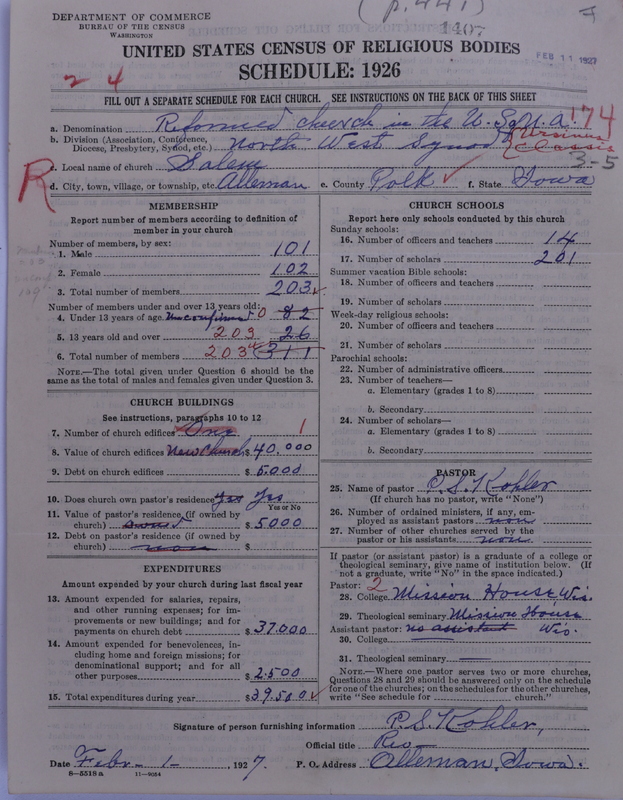 (p.441)
1407
DEPARTMENT OF COMMERCE
BUREAU OF THE CENSUS
WASHINGTON
UNITED STATES CENSUS OF RELIGIOUS BODIES
FEB 11 1927
SCHEDULE: 1926
2 4
FILL OUT A SEPARATE SCHEDULE FOR EACH CHURCH. SEE INSTRUCTIONS ON THE BACK OF THIS SHEET
a. Denomination Reformed church in the U.S. of A. 174
b. Division (Association, Conference, Diocese, Presbytery, Synod, etc.) North West Synod Ursinus Classis
3-5
R
c. Local name of church Salem
d. City, town, village, or township, etc. Alleman e. County Polk f. State Iowa
MEMBERSHIP
Report number of members according to definition of
member in your church
Number of members, by sex:
1. Male 101
2. Female 102
3. Total number of members 203
Number of members under and over 13 years old:
4. Under 13 years of age unconfirmed 0 82
5. 13 years old and over 203 26
6. Total number of members 203 311
NOTE.—The total given under Question 6 should be the
same as the total of males and females given under Question 3.
CHURCH BUILDINGS
See instructions, paragraphs 10 to 12
7. Number of church edifices One 1
8. Value of church edifices New Church $ 40,000
9. Debt on church edifices $ 5,000
10. Does church own pastor's residence? Yes Yes
Yes or No
11. Value of pastor's residence (if owned by
church) owned $ 5000
12. Debt on pastor's residence (if owned by
church) none $
EXPENDITURES
Amount expended by your church during last fiscal year
13. Amount expended for salaries, repairs,
and other running expenses; for im-
provements or new buildings; and for
payments on church debt $ 37,000
14. Amount expended for benevolences, in-
cluding home and foreign missions; for
denominational support; and for all
other purposes $ 2,500
15. Total expenditures during year $ 39,500
CHURCH SCHOOLS
Report here only schools conducted by this church
Sunday schools:
16. Number of officers and teachers 14
17. Number of scholars 201
Summer vacation Bible schools:
18. Number of officers and teachers
19. Number of scholars
Week-day religious schools:
20. Number of officers and teachers
21. Number of scholars
Parochial schools:
22. Number of administrative officers
23. Number of teachers—
a. Elementary (grades 1 to 8)
b. Secondary
24. Number of scholars—
a. Elementary (grades 1 to 8)
b. Secondary
PASTOR
25. Name of pastor P. S. Kohler
(If church has no pastor, write "None")
26. Number of ordained ministers, if any, em-
ployed as assistant pastors none
27. Number of other churches served by the
pastor or his assistants none
If pastor (or assistant pastor) is a graduate of a college or
theological seminary, give name of institution below. (If
not a graduate, write "No" in the space indicated.)
Pastor: 2
28. College Mission House Wis.
29. Theological seminary Mission House
Assistant pastor: no assistant Wis.
30. College
31. Theological seminary
NOTE.—Where one pastor serves two or more churches,
Questions 28 and 29 should be answered only on the schedule
for one of the churches; on the schedules for the other churches,
write "See schedule for church."
Signature of person furnishing information P. S. Kohler,
Official title Rev
Date Febr - 1 - , 1927. P. O. Address Alleman, Iowa.
8—5518 a 11—9054